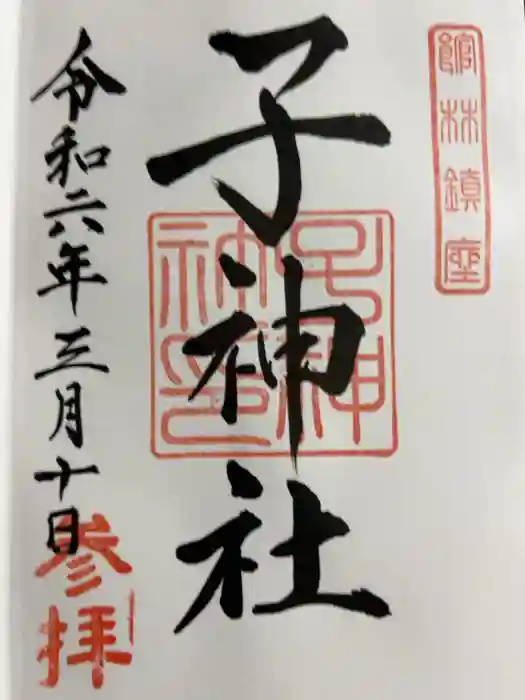 館林鎮座
子神社
子神
神印
令和六年三月十日
参拝